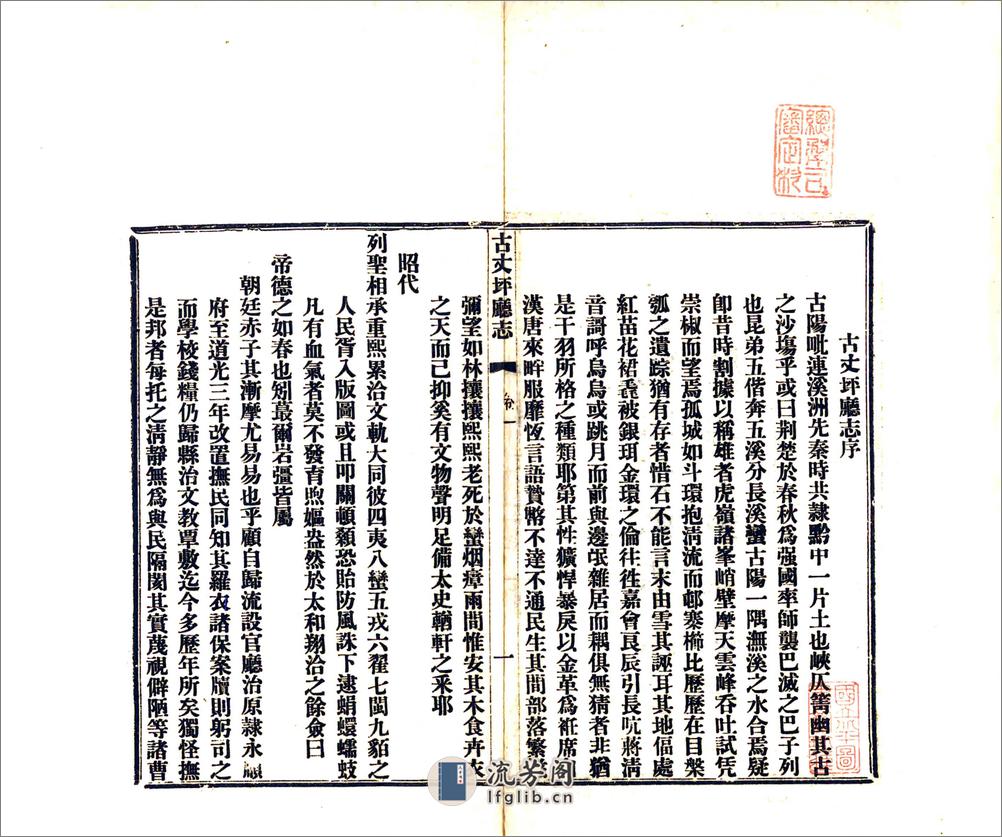 古丈坪廳志序
古陽毗連溪洲先秦時共隸黔中一片土也峽仄箐幽其古
之沙塲乎或曰荆楚於春秋爲强國率師襲巴滅之巴子列
也昆弟五偕奔五溪分長溪蠻古陽一隅潕溪之水合焉疑
卽昔時割據以稱雄者虎嶺諸峯峭壁摩天雲峰呑吐試凭
崇椒而望焉孤城如斗環抱淸流而邨寨櫛比歷歷在目槃
瓠之遺踪猶有存者惜石不能言末由雪其誣耳其地偪處
紅苗花裙毳被銀珥金環之倫往徃嘉會良辰引長吭蔣淸
音謌呼烏烏或跳月而前與邊氓雜居而耦俱無猜者非猶
是干羽所格之種類耶第其性獷悍暴戾以金革爲袵席由
漢唐來畔服靡恆言語贄幣不達不通民生其間部落繁多
古丈坪廳志
卷一
一
彌望如林攘攘熙熙老死於蠻烟瘴雨間惟安其木食卉衣
之天而已抑奚有文物聲明足備太史輶軒之釆耶
昭代
列聖相承重熙累洽文軌大同彼四夷八蠻五戎六翟七閩九貊之
人民胥入版圖或且叩關頓顙恐貽防風誅下逮蜎蠉蠕蚑
凡有血氣者莫不發育煦嫗盎然於太和翔洽之餘僉曰
帝德之如春也矧蕞爾岩彊皆屬
朝廷赤子其漸摩尤易易也乎顧自歸流設官廳治原隸永順
府至道光三年改置撫民同知其羅衣諸保案牘則躬司之
而學校錢糧仍歸縣治文敎覃敷迄今多歷年所矣獨怪撫
是邦者每托之淸靜無爲與民隔閡其實蔑視僻陋等諸曹
流芳阁
lfglib.cn